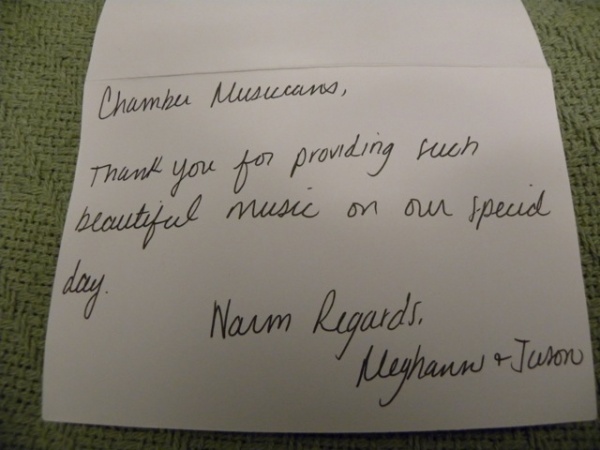 Chamber Musicians,
Thank you for providing such
beautiful music on our special
day.
Warm Regards,
Meghann + Jason